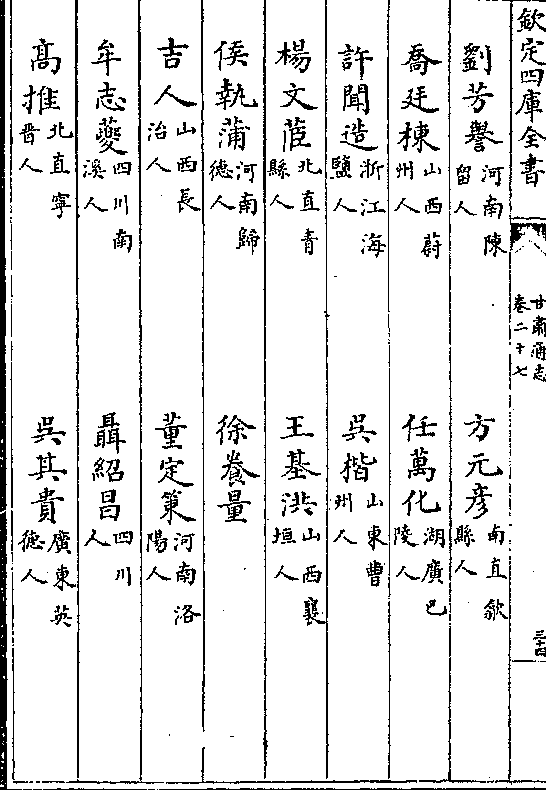 欽定四庫全書
甘肅通志
卷二十七
三十四
劉芳譽河南陳留人 方元彦南直歙縣人
喬廷棟山西蔚州人 任萬化湖廣巴陵人
許聞造浙江海鹽人 吳楷山東曹州人
楊文䓕北直青縣人 王基洪山西襄垣人
侯執蒲河南歸德人 徐養量
吉人山西長治人 董定策河南洛陽人
牟志夔四川南溪人 聶紹昌四川人
高推北直寧晉人 吳其貴廣東英德人